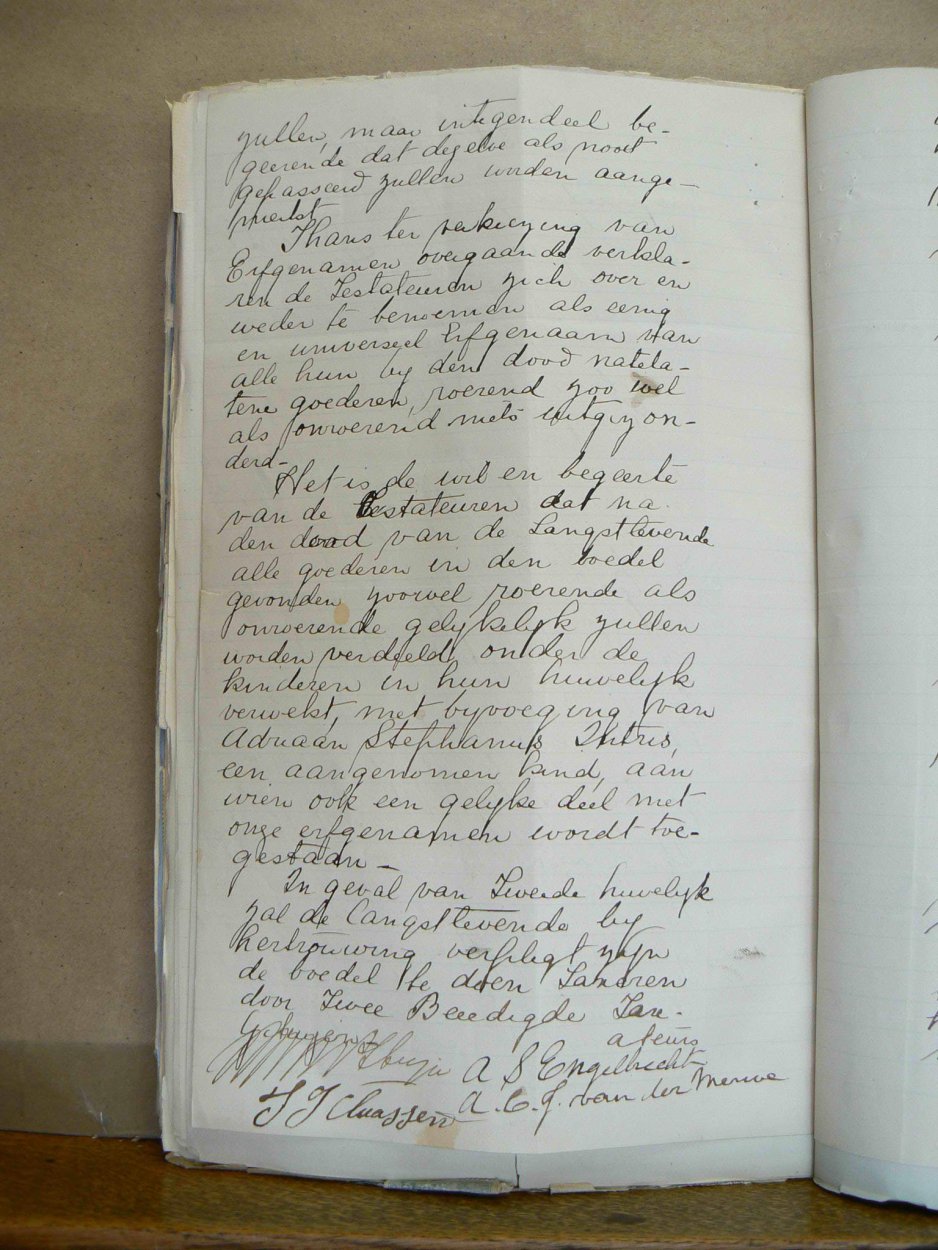 zullen, maar integendeel be-
geerende dat dezelve als nooit
gepasseerd zullen worden aange-
merkt
Thans ter verkiezing van
Erfgenamen overgaande verkla-
ren de Testateuren zich over en
weder te benoemen als eenig
en universeel Erfgenaam van
alle hun by den dood natela-
tene goederen, roerend zoo wel
als onroerend niets uitgezon-
derd-
Het is de wil en begeerte
van de Testateuren dat na
den dood van de Langstlevende
alle goederen in den boedel
gevonden zoowel roerende als
onroerende gelykelyk zullen
worden verdeeld onder de
kinderen in hun huwelyk
verwekt, met byvoeging van
Adriaan Stephanus
een aangenomen kind, aan
wien ook een gelyke deel met
onze erfgenamen wordt toe-
gestaan -
In geval van Tweede huwelyk
zal de Langstlevende by
hertrouwing verpligt zyn
de boedel te doen Taxeren
door Twee Beeedigde Tax-
ateurs
A S Engelbrecht
A. C. J. van der Merwe
Claassen